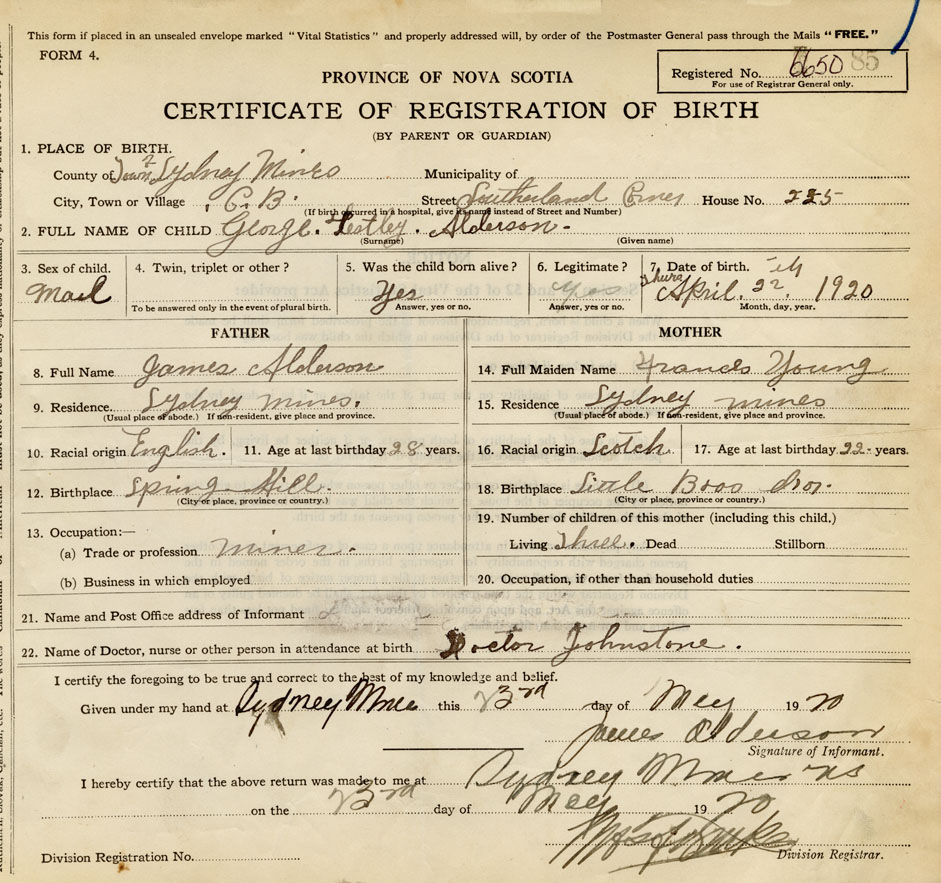 This form if placed in an unsealed envelope marked "Vital Statistics" and properly addressed will, by order of the Postmaster General pass through the Mails "FREE."
FORM 4.
Registered No. 6650 85
For use of Registrar General only.
PROVINCE OF NOVA SCOTIA
CERTIFICATE OF REGISTRATION OF BIRTH
(BY PARENT OR GUARDIAN)
1. PLACE OF BIRTH.
County of Town of Sydney Mines Municipality of
City, Town or Village C. B. Street Southerland House No. 225
(If birth occurred in a hospital, give its name instead of Street and Number)
2. FULL NAME OF CHILD George. Alderson-
(Surname) (Given name)
3. Sex of child. 4. Twin, triplet or other? 5. Was the child born alive? 6. Legitimate? 7. Date of birth.
Mail Yes yes Thurs April. 22. 1920
To be answered only in the event of plural birth. Answer, yes or no. Answer, yes or no. Month, day, year.
FATHER MOTHER
8. Full Name James Alderson 14. Full Maiden Name Francis Young
9. Residence. Sydney mines. 15. Residence Sydney mines
(Usual place of abode.) If non-resident, give place and province. (Usual place of abode.) If non-resident, give place and province.
10. Racial origin English. 11. Age at last birthday 28 years. 16. Racial origin Scotch. 17. Age at last birthday 22- years.
12. Birthplace Spring Hill. 18. Birthplace Little
(City or place, province or country.) (City or place, province or country.)
13. Occupation:— 19. Number of children of this mother (including this child.)
(a) Trade or profession miner. Living Three. Dead Stillborn
(b) Business in which employed 20. Occupation, if other than household duties
21. Name and Post Office address of Informant
22. Name of Doctor, nurse or other person in attendance at birth Doctor Johnstone.
I certify the foregoing to be true and correct to the best of my knowledge and belief.
Given under my hand at Sydney Mines this 23rd day of May 1920
James Alderson
Signature of Informant.
I hereby certify that the above return was made to me at Sydney Mines ns
on the 23rd day of May 1920
Division Registration No. Division Registrar.